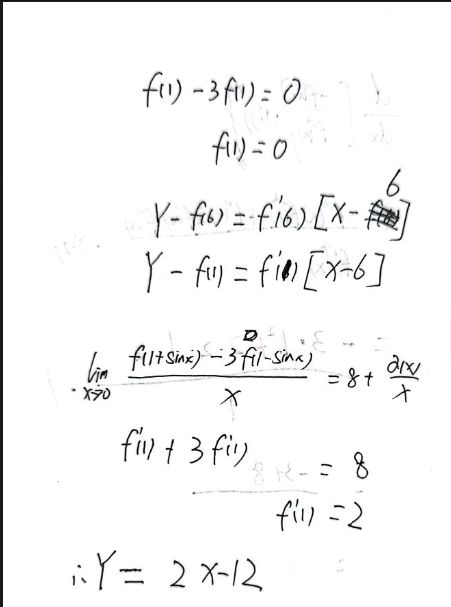 f(1) - 3f(1) = 0
f(1) = 0
6
Y - f(6) = f'(6) [X - ]
Y - f(1) = f'(1) [X-6]
lim x→0 f(1+sinx) - 3f(1-sinx) / x = 8 + α(x)/x
f'(1) + 3f'(1) = 8
f'(1) = 2
∴ Y = 2X-12